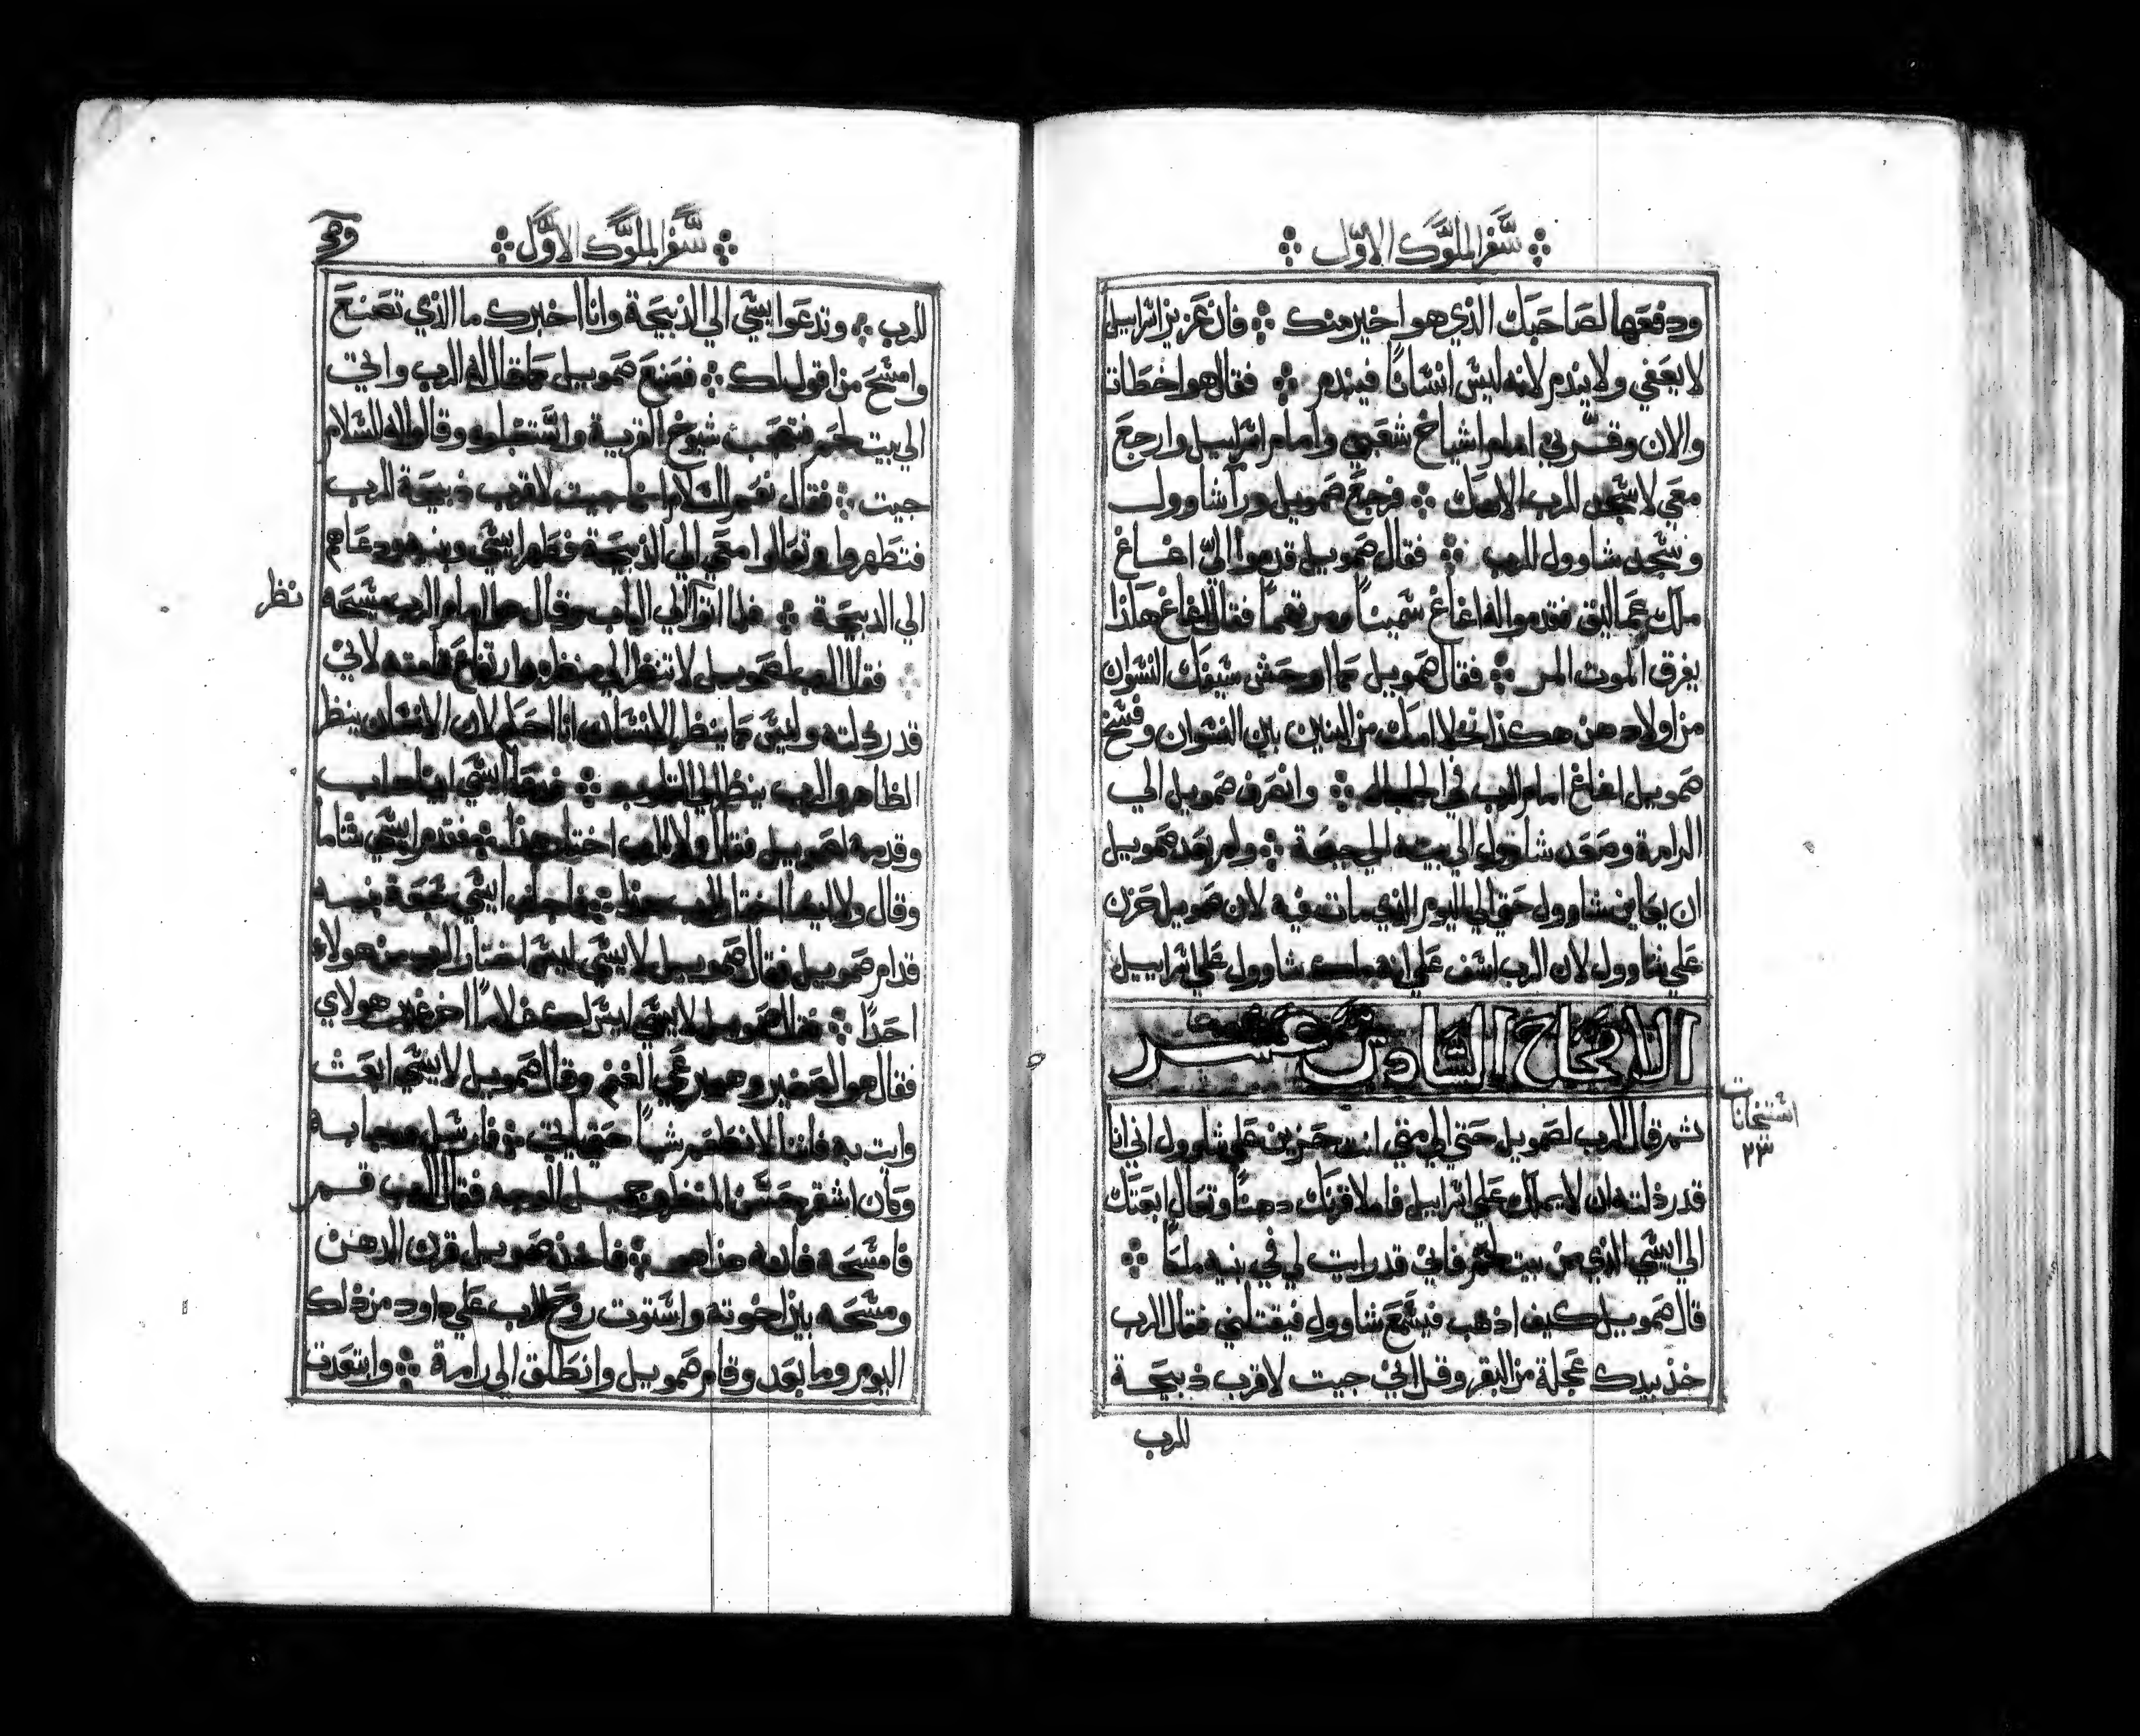 سفر الملوك الاول
ودفعها لصاحبك الذي هو اخير منك فان عزيز اسراييل
لا يعفي ولا يندم لانه ليس انسانًا فيندم فقال هوا خطات
والان وقرني امام اشياخ شعبي وامام اسراييل وارجع
معي لاسجد للرب الاهك فرجع صمويل ورا شاوول
وسجد شاوول للرب فقال صمويل قدموا اليّ اغاغ
ملك عماليق فقدموا له اغاغ سمينًا ومرتعمًا فقال اغاغ هاذا
يفرق الموت المر فقال صمويل كما اوحش سيفك النسوان
من اولادهن هكذا تخلا امك من البنين بين النسوان وفسخ
صمويل اغاغ امام الرب في الجلجال وانصرف صمويل الي
الرامة وصعد شاوول الي بيته الي جبعة ولم يعد صمويل
ان يعاين شاوول حتي الي اليوم الذي مات فيه لان صمويل حزن
علي شاوول لان الرب اسف علي انه ملك شاوول علي اسراييل
الاصحاح السادس عشر
استنخانات
٢٣
ثم قال الرب لصمويل حتي الي متي انت حزين علي شاوول اني انا
قد رذلته ان لا يملك علي اسراييل فاملا قرنك دهنًا وتعال ابعتك
الي ايسي الذي من بيت لحم فاني قد رايت لي في بنيه ملكًا
قال صمويل كيف اذهب فيسمع شاوول فيقتلني فقال الرب
خذ بيدك عجلة من البقر وقل اني جيت لاقرب ذبيحة
للرب
سفر الملوك الاول
للرب وتدعوا ايسي الي الذبيحة وانا اخبرك ما الذي تصنع
وامسح من اقول لك فصنع صمويل كما قال له الرب واتي
الي بيت لحم فتعجب شيوخ القرية واستقبلوه وقالوا له السلام
جيت فقال نعم السلام انما جيت لاقرب ذبيحة للرب
فتطهروا وتعالوا معي الي الذبيحة فطهر ايسي وبنيه ودعاهم
الي الدبيحة فلما اتوا الي الباب وقال هوا امام الرب مسيحه
نظر
فقال الرب لصمويل لا تنظر الي منظره وارتفاع قامته لاني
قد رذلته وليس كما ينظر الانسان انا احكم لان الانسان ينظر
الظاهر والرب ينظر الي القلوب فدعا ايسي ابيناداب
وقدمه لصمويل فقال ولا للرب اختار هذا فقدم ايسي شاما
وقال ولا ايضا اختار الرب هذا فاجاب ايسي سبعة بنيه
قدام صمويل فقال صمويل لايسي ليس اختار الرب من هولاء
احدًا فقال صمويل لايسي ليس لك غلامًا اخر غير هولاي
فقال هوا الصغير وهم يرعي الغنم وقال صمويل لايسي ابعث
وات به فاننا لا نطعم شياً حتي ياتي فارسل وجا به
وكان اشقر حسن المنظر جميل الوجه فقال الرب قم
فامسحه فانه هذا هو فاخذ صمويل قرن الدهن
ومسحه بين اخوته واستوت روح الرب علي داود من ذلك
اليوم وما بعد وقام صمويل وانطلق الي رامة وابتعدت